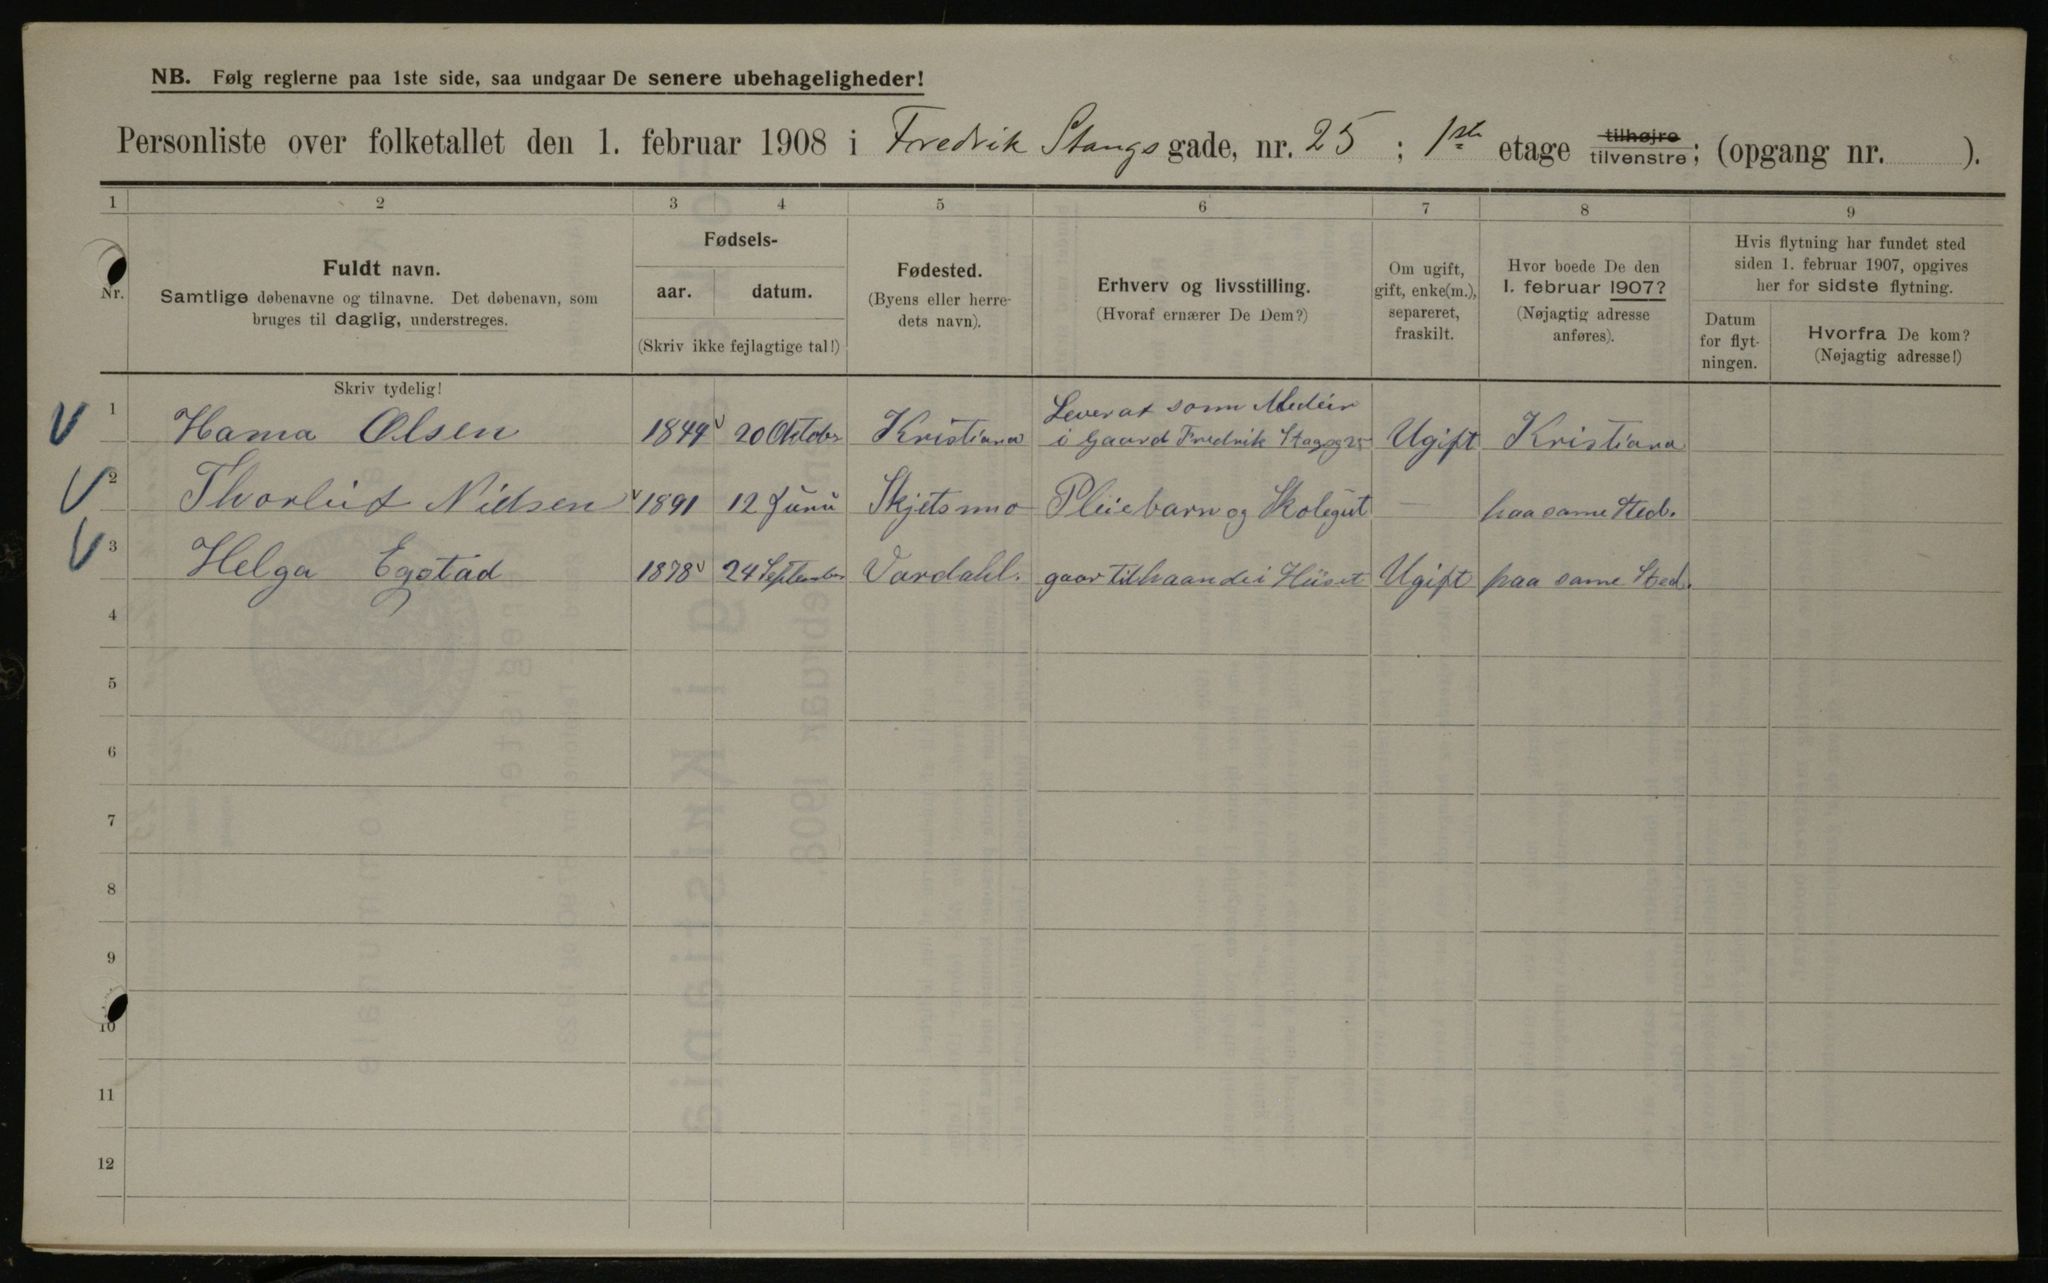 NB. Følg reglerne paa 1ste side, saa undgaar De senere ubehageligheder!
Personliste over folketallet den 1. februar 1908 i Fredrik Stangs gade, nr. 25 ; 1ste etage tilhøjre tilvenstre; (opgang nr. ).
1 2 3 4 5 6 7 8 9
Nr.
Fuldt navn.
Samtlige døbenavne og tilnavne. Det døbenavn, som
bruges til daglig, understreges.
Skriv tydelig!
Fødsels-
aar. datum.
(Skriv ikke fejlagtige tal!)
Fødested.
(Byens eller herre-
dets navn).
Erhverv og livsstilling.
(Hvoraf ernærer De Dem?)
Om ugift,
gift, enke(m.),
separeret,
fraskilt.
Hvor boede De den
1. februar 1907?
(Nøjagtig adresse
anføres).
Hvis flytning har fundet sted
siden 1. februar 1907, opgives
her for sidste flytning.
Datum
for flyt-
ningen.
Hvorfra De kom?
(Nøjagtig adresse!)
1 Olsen 20 Oktober Kristiana i Gaard Fredrik Ugift Kristiana
2 Nielsen 1891 12 Juni Skjetsmo Pleiebarn og Skolegut — paa same Sted.
3 Helga Egstad 1878 24 September Vardahl. gaar tilhaande i Huset Ugift paa same Sted.
4
5
6
7
8
9
10
11
12